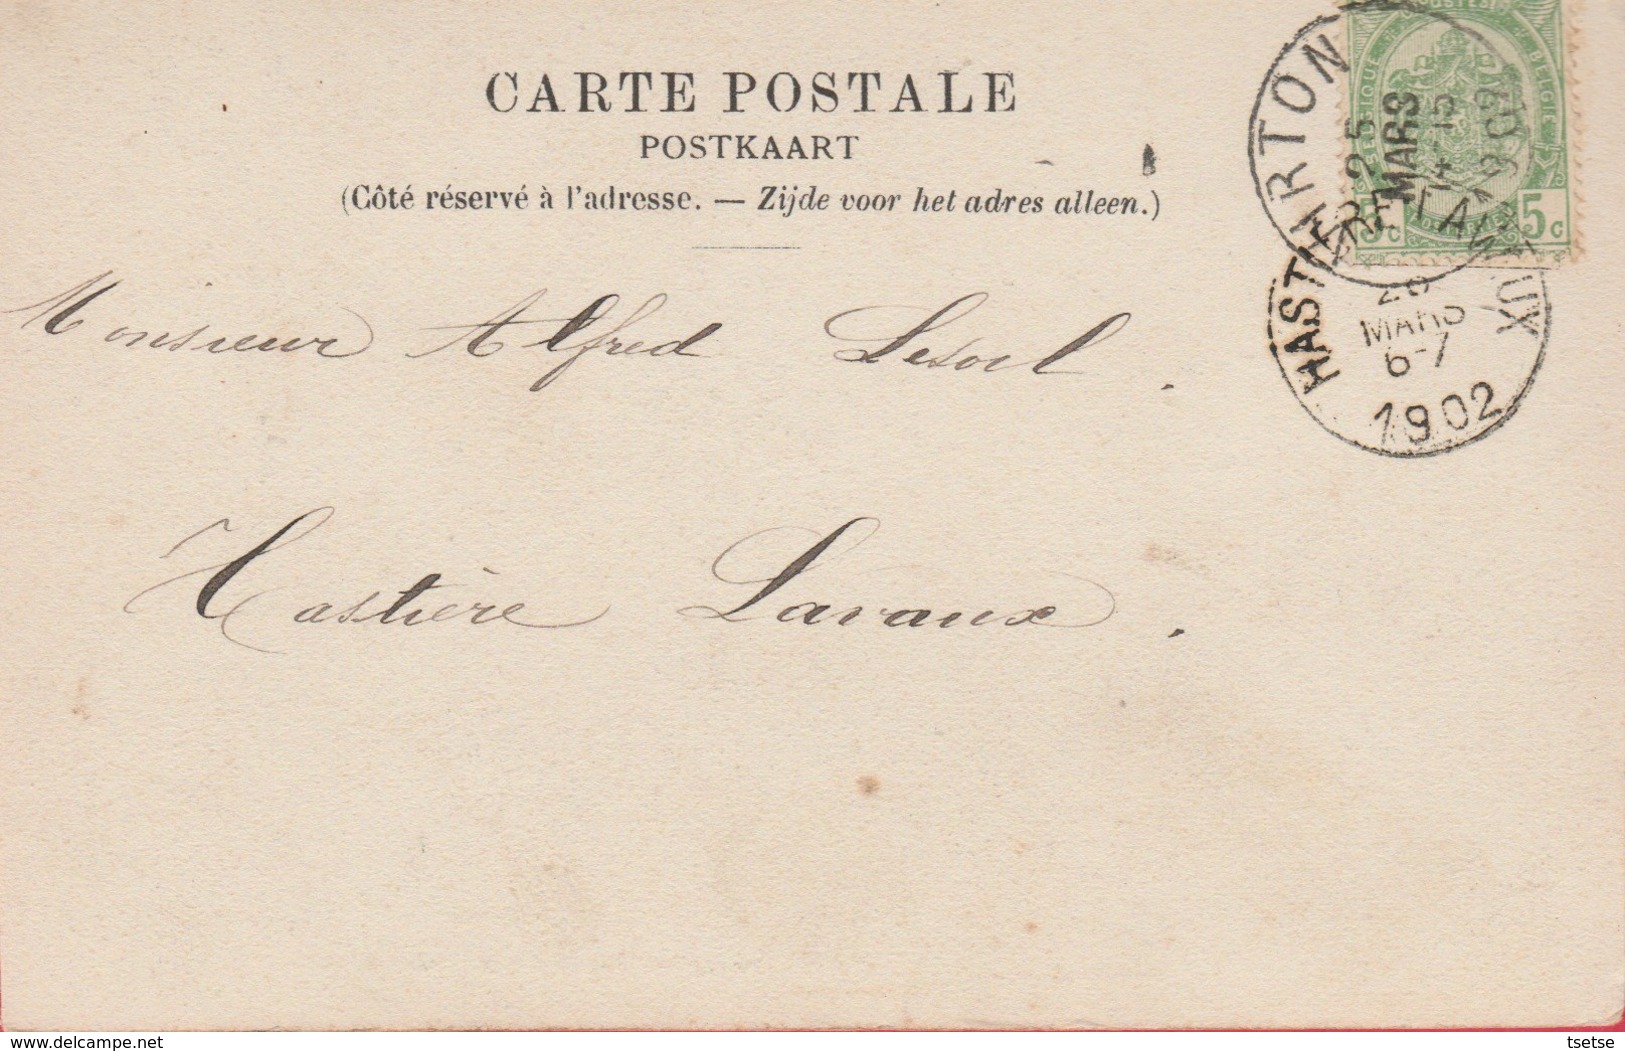 CARTE POSTALE
POSTKAART
(Côté réservé à l'adresse. — Zijde voor het adres alleen.)
Monsieur Alfred Lesoil.
Hastière Lavaux.
VIRTON
25
MARS
1902
BELGIQUE BELGIE
5c 5c
HASTIÈRE-LAVAUX
MARS
6-7
1902
delcampe.net
tsetse